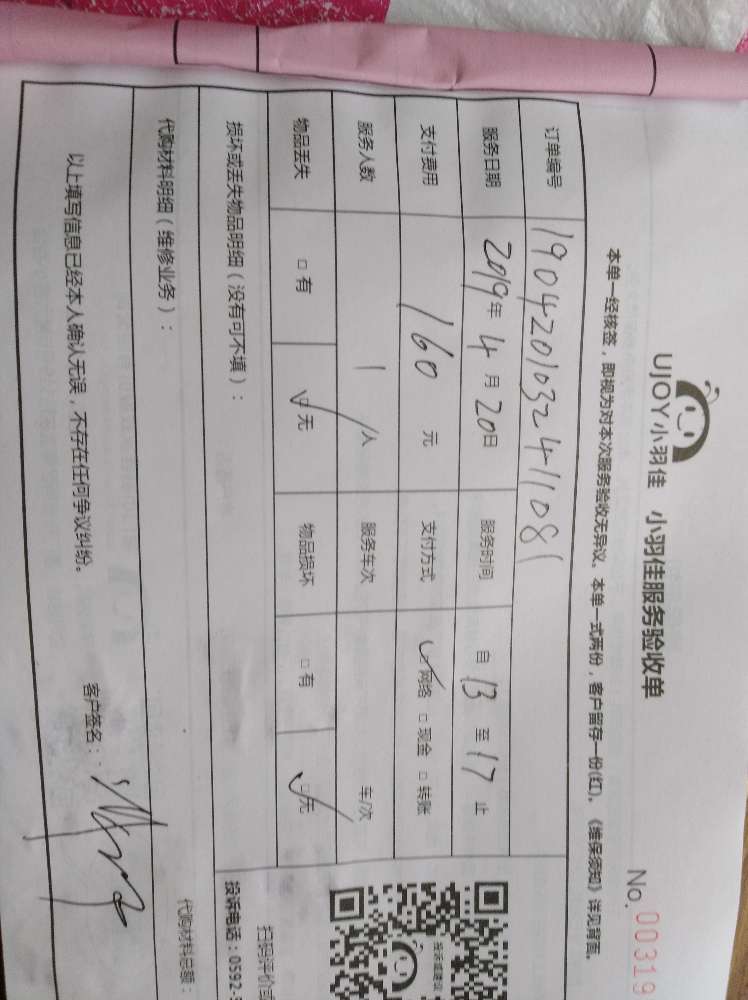 UJOY小羽佳 小羽佳服务验收单
No. 00319
本单一经核签，即视为对本次服务验收无异议。本单一式两份，客户留存一份(红)。《维保须知》详见背面。
订单编号 1904201032411081
服务日期 2019年4月20日 服务时间 自13至17止
支付费用 160元 支付方式 ✓网络 □现金 □转账
服务人数 1人 服务车次 车/次
物品丢失 □有 ☑无 物品损坏 □有 ☑无
损坏或丢失物品明细（没有可不填）：
扫码评价或
投诉电话：0592-
代购材料明细（维修业务）：
代购材料总额：
以上填写信息已经本人确认无误，不存在任何争议纠纷。
客户签名：